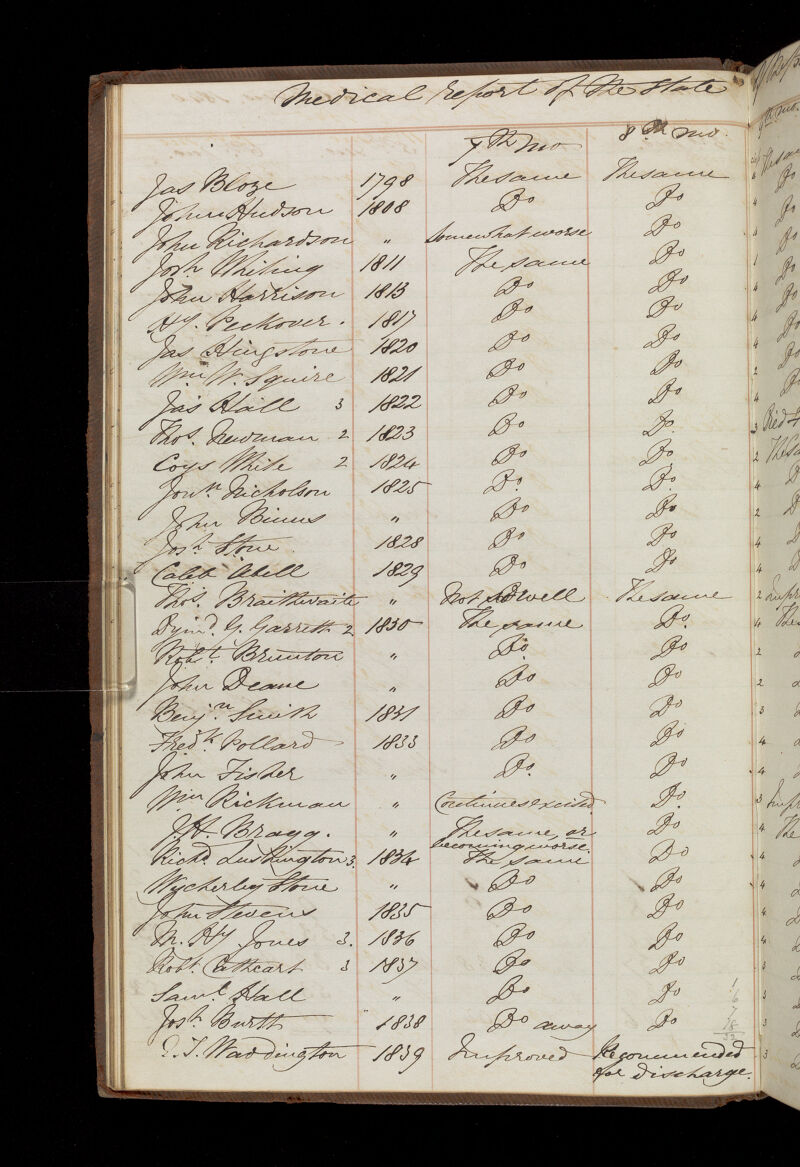 Medical report of the State
7th mo 8th mo.
Jas Bloze 1798 The same The same
John Hudson 1808 Do Do
John Richardson " Somewhat worse Do
Josh Whiting 1811 The same Do
John Harrison 1813 Do Do
Hy. Peckover. 1817 Do Do
Jas Kingstone 1820 Do Do
Wm W. Squire 1821 Do Do
Jas Hall 3 1822 Do Do
Thos. Newman 2 1823 Do Do.
Coys White 2 1824 Do Do
Jonn. Nicholson 1825 Do. Do.
John Binns " Do Do
Josh Stone 1828 Do Do
Caleb Abell 1829 Do Do
Thos. Braithwaite " Not so well The same
Dymd. G. Garrett 2 1830 The same Do.
Robt. Brunton " Do. Do
John Deane " Do Do
Benjn. Smith 1831 Do Do
Fredk Pollard 1833 Do Do
John Fisher " Do. Do
Wm Rickman " Continues excited. Do.
J.H. Bragg. " The same, or Do
becoming worse.
Richd Lushington 3. 1834 The same Do
Wycherley Stone " Do Do
John Stevens 1835 Do Do
M. Hy Jones 3. 1836 Do Do
Robt. Cathcart 3 1837 Do Do
Saml Hall " Do Do
Josh Burtt 1838 Do away Do
E. T. Waddington 1839 Improved Recommended
for discharge.